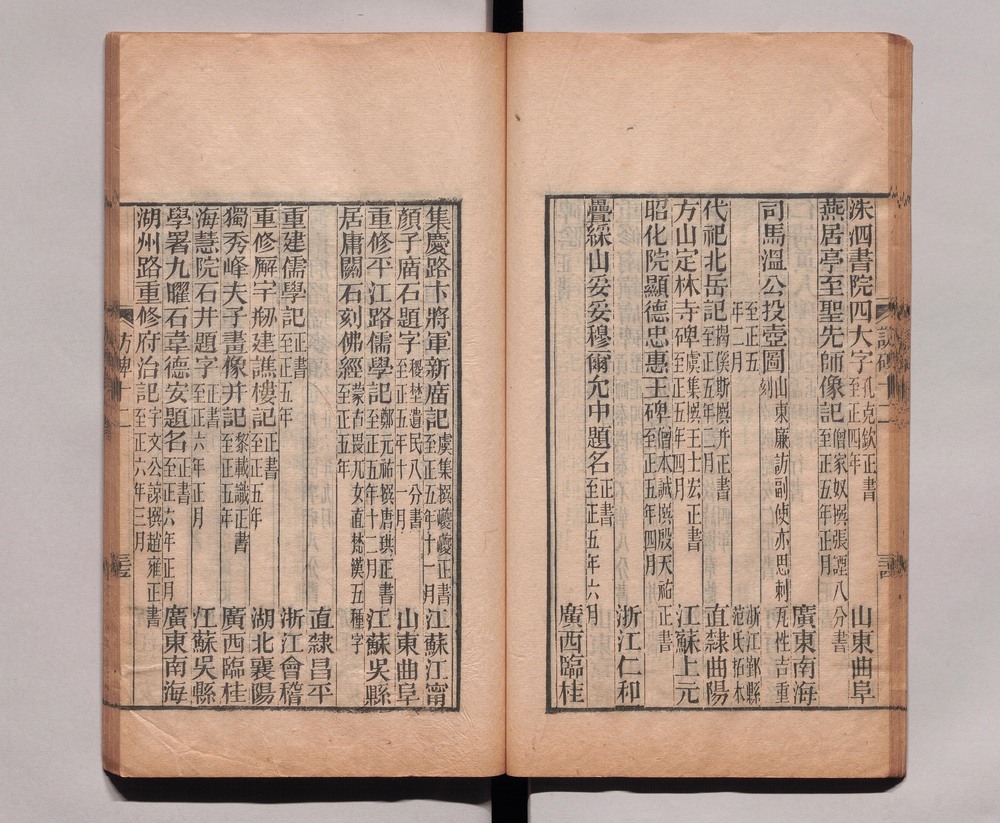 洙泗書院四大字 孔克欽正書 至正四年 山東曲阜
燕居亭至聖先師像記 僧家奴撰張謹八分書 至正五年正月 廣東南海
司馬溫公投壺圖 山東廉訪副使亦思剌瓦性吉重刻 至正五年二月 浙江鄞縣范氏拓本
代祀北岳記 揭傒斯撰并正書 至正五年三月 直隸曲陽
方山定林寺碑 虞集撰王士宏正書 至正五年四月 江蘇上元
昭化院顯德忠惠王碑 僧本誠撰殷天祐正書 至正五年四月 浙江仁和
疊綵山安妥穆爾允中題名 正書 至正五年六月 廣西臨桂
集慶路卞將軍新廟記 虞集撰夔夔正書 至正五年十一月 江蘇江甯
顏子廟石題字 稷埜遺民八分書 至正五年十一月 山東曲阜
重修平江路儒學記 鄭元祐撰唐珙正書 至正五年十二月 江蘇吳縣
居庸關石刻佛經 蒙古畏兀女直梵漢五種字 至正五年 直隸昌平
重建儒學記 正書 至正五年 浙江會稽
重修廨宇剏建譙樓記 正書 至正五年 湖北襄陽
獨秀峰夫子畫像并記 黎載識正書 至正五年 廣西臨桂
海慧院石井題字 正書 至正六年正月 江蘇吳縣
學署九曜石韋德安題名 正書 至正六年正月 廣東南海
湖州路重修府治記 宇文公諒撰趙雍正書 至正六年三月
訪碑 十二